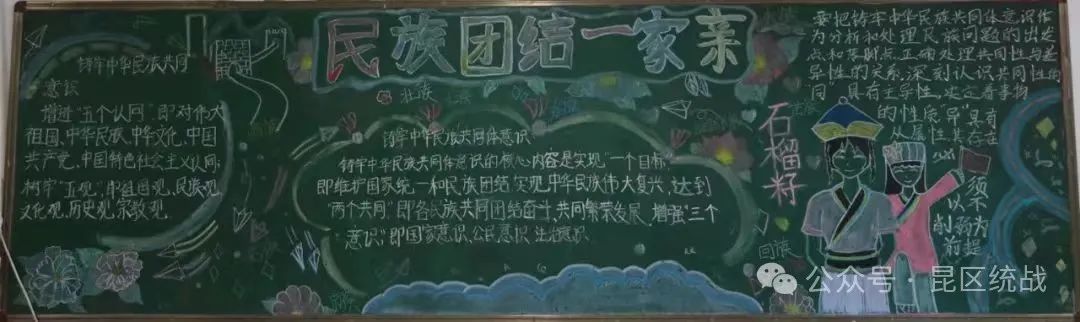 民族团结一家亲
铸牢中华民族共同
意识
增进“五个认同”即对伟大
祖国、中华民族、中华文化、中国
共产党、中国特色社会主义认同,
树牢“五观”,即祖国观,民族观,
文化观,历史观,宗教观.
壮族
铸牢中华民族共同体意识
铸牢中华民族共同体意识的核心内容是实现“一个目标”
即维护国家统一和民族团结,实现中华民族伟大复兴,达到
“两个共同”即各民族共同团结奋斗,共同繁荣发展,增强“三个
意识”即国家意识,公民意识,法治意识
石榴籽
回族
要把铸牢中华民族共同体意识作
为分析和处理民族问题的出发
点和落脚点.正确处理共同性与差
异性的关系,深刻认识共同性的
“同”具有主导性,决定着事物
的性质“异”具有
从属性其存在
须以不
削弱为
前提
公众号·昆区统战